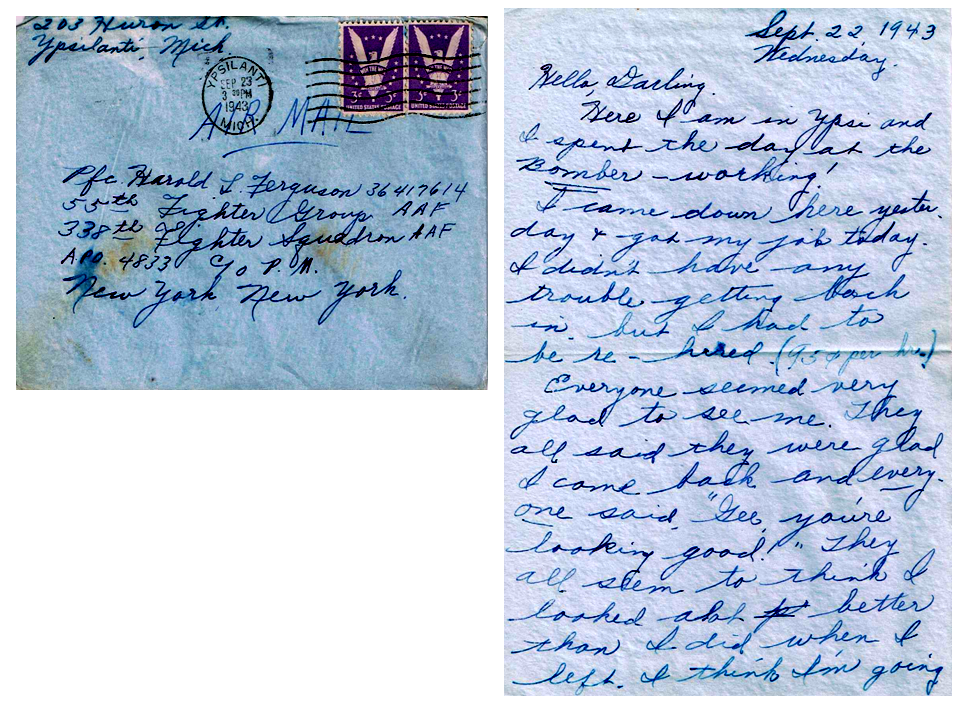 203 Huron St.
Ypsilanti, Mich.
YPSILANTI
SEP 23
3 PM
1943
MICH.
3¢ 3¢
UNITED STATES POSTAGE UNITED STATES POSTAGE
AIR MAIL
Pfc. Harold L. Ferguson 36417614
55th Fighter Group AAF
338th Fighter Squadron AAF
APO. 4833 c/o P.M.
New York New York.
Sept. 22 1943
Wednesday.
Hello, Darling.
Here I am in Ypsi and
I spent the day at the
Bomber - working!
I came down here yester-
day & got my job today.
I didn't have any
trouble getting back
in, but I had to
be re-hired. (95¢ per hr.)
Everyone seemed very
glad to see me. They
all said they were glad
I came back and every-
one said, "Gee, you're
looking good!" They
all seem to think I
looked alot better
than I did when I
left. I think I'm going